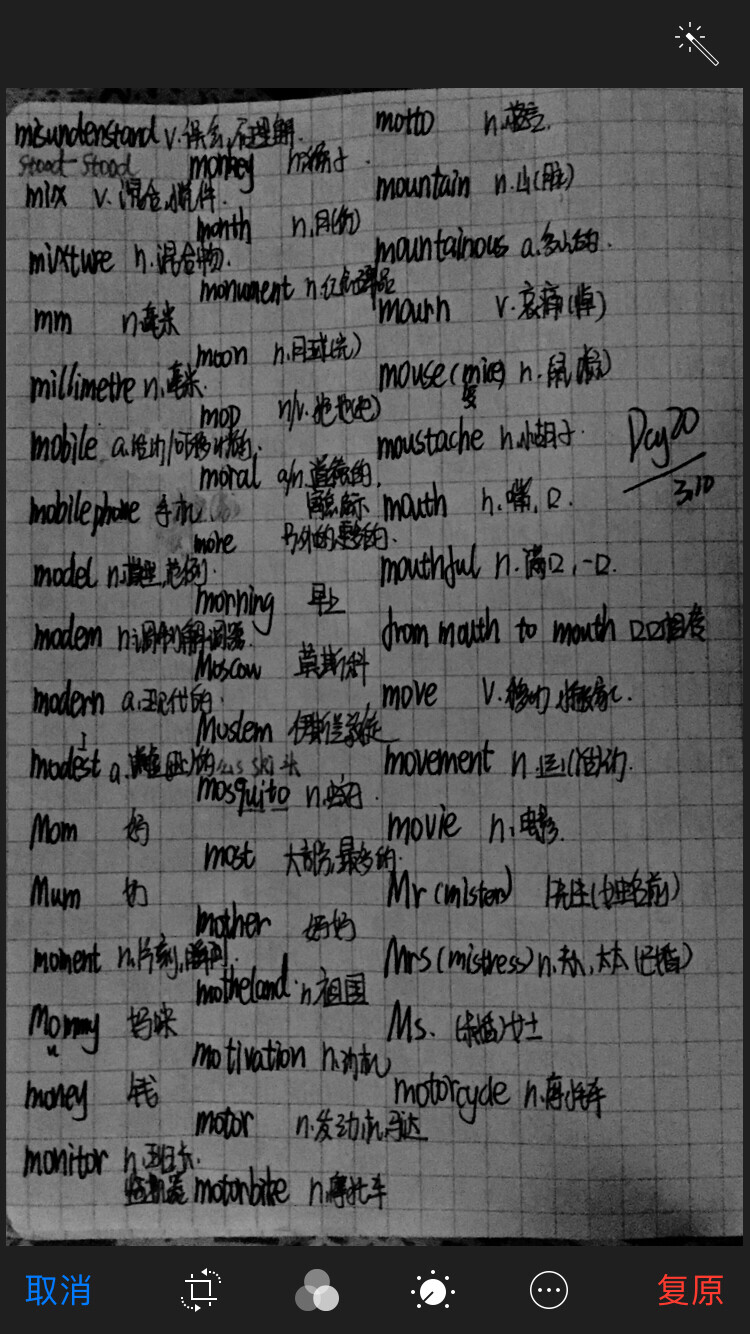 misunderstand v.误会,不理解.
stood stood
mix v.混合,搅拌.
mixture n.混合物.
mm n.毫米
millimetre n.毫米.
mobile a.活动/可移动的.
mobile phone 手机
model n.模型,范例.
modem n.调制解调器.
modern a.现代的
modest a.的
Mom 妈
Mum 妈
moment n.片刻,瞬间.
Mommy 妈咪
u
money 钱
monitor n.班长.
监视器
monkey n.猴子.
month n.月(份)
monument n.纪念碑
moon n.月球(光)
mop n/v.拖地(把)
moral a/n.道德的.
寓意
more 另外的.
morning 早上
Moscow 莫斯科
Muslem 伊斯兰教徒
mosquito n.蚊子.
most 大部分,最多的.
mother 妈妈
motheland n.祖国
motivation n.动机
motor n.发动机,马达
motorbike n.摩托车
motto n.格言.
mountain n.山(脉)
mountainous a.多山的.
mourn v.哀痛(悼)
mouse (mice) n.鼠
moustache n.小胡子.
mouth n.嘴,口.
mouthful n.满口,一口.
from mouth to mouth 口口相传
move v.移动,搬家.
movement n.运(活)动.
movie n.电影.
Mr (mister) 先生(姓名前)
Mrs (mistress) n.夫人,太太(已婚)
Ms. 女士
motorcycle n.摩托车
Day20
3.10
取消
复原